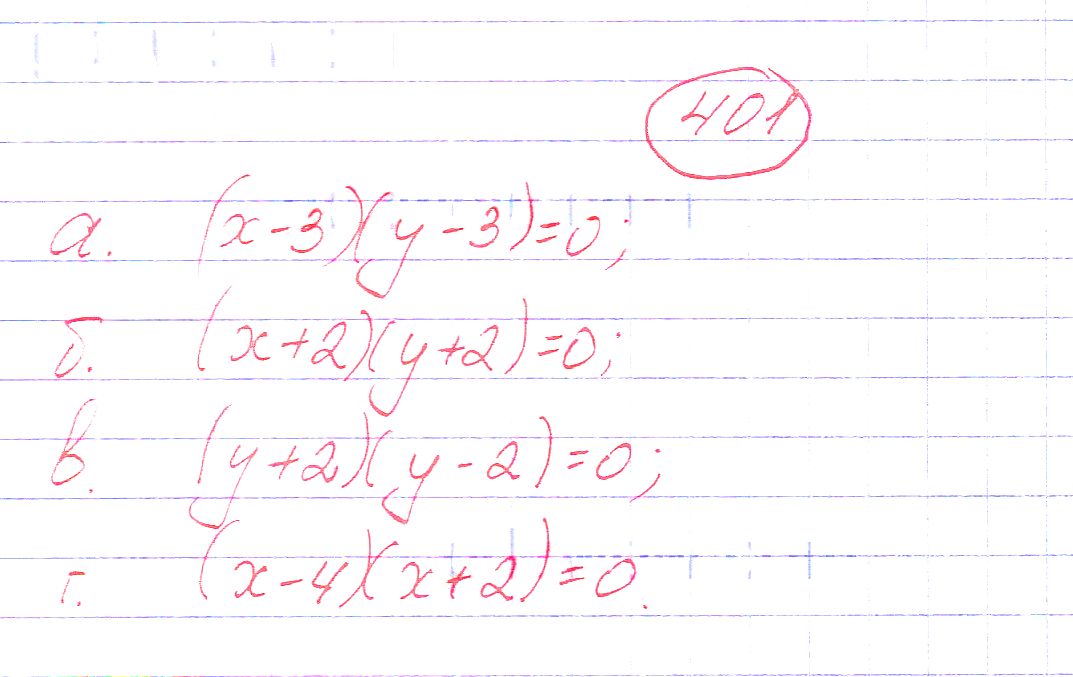 401
а. (x-3)(y-3)=0;
б. (x+2)(y+2)=0;
в. (y+2)(y-2)=0;
г. (x-4)(x+2)=0.